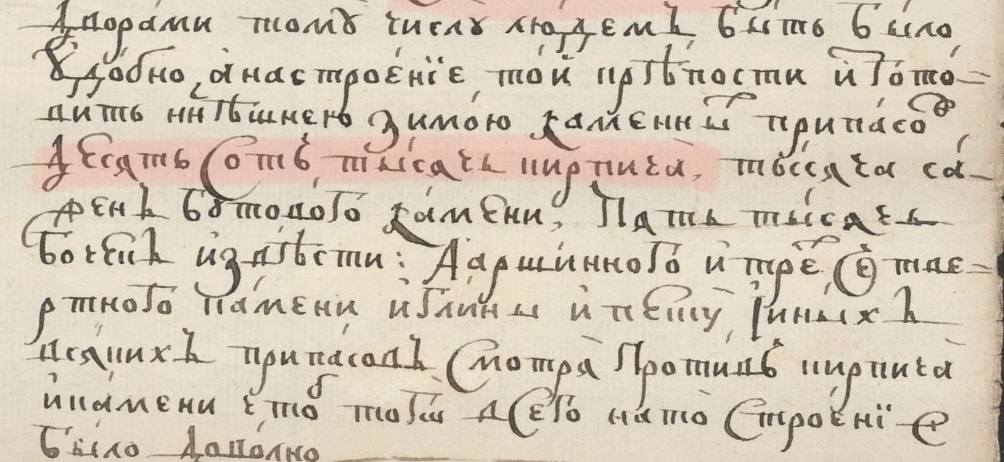 дворами томꙋ числꙋ людемъ быть было
ꙋдобно, а҆настроенїе той крѣпости и҆гото=
вить нн҃ѣшнею зимою каменны припасов
десять сотъ тысячь кирпича, тысяча са-
женъ бꙋтового камени, Пять тысячь
бочекъ и҆звѣсти: Ааршинного и҆тре е тве=
ртного камени и҆глины и҆пескꙋ, іныхъ
всякихъ припасовъ смотря Противъ кирпича
и҆камени чтоб того всего нато строенїе
было доволно